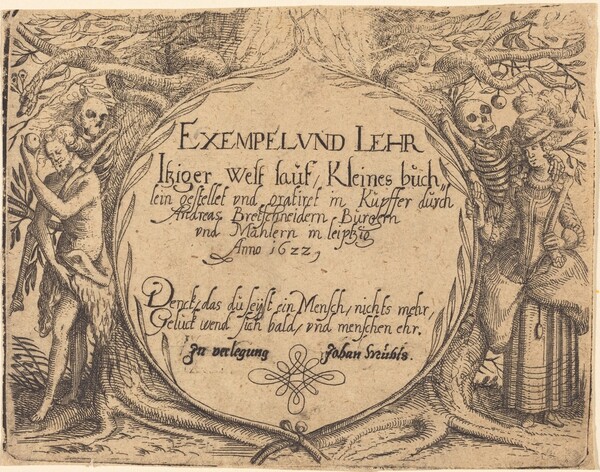 EXEMPEL VND LEHR
Itziger Welt lauf, Kleines büch,,
lein gestellet vnd gratiret in Küpffer dürch
Andreas Bretschneidern Bürgern
vnd Mahlern in leiptzig
Anno 1622,
Denck, das du seyst ein Mensch, nichts mehr,
Gelück wend sich bald, vnd menschen ehr.
Zu verlegung Johan